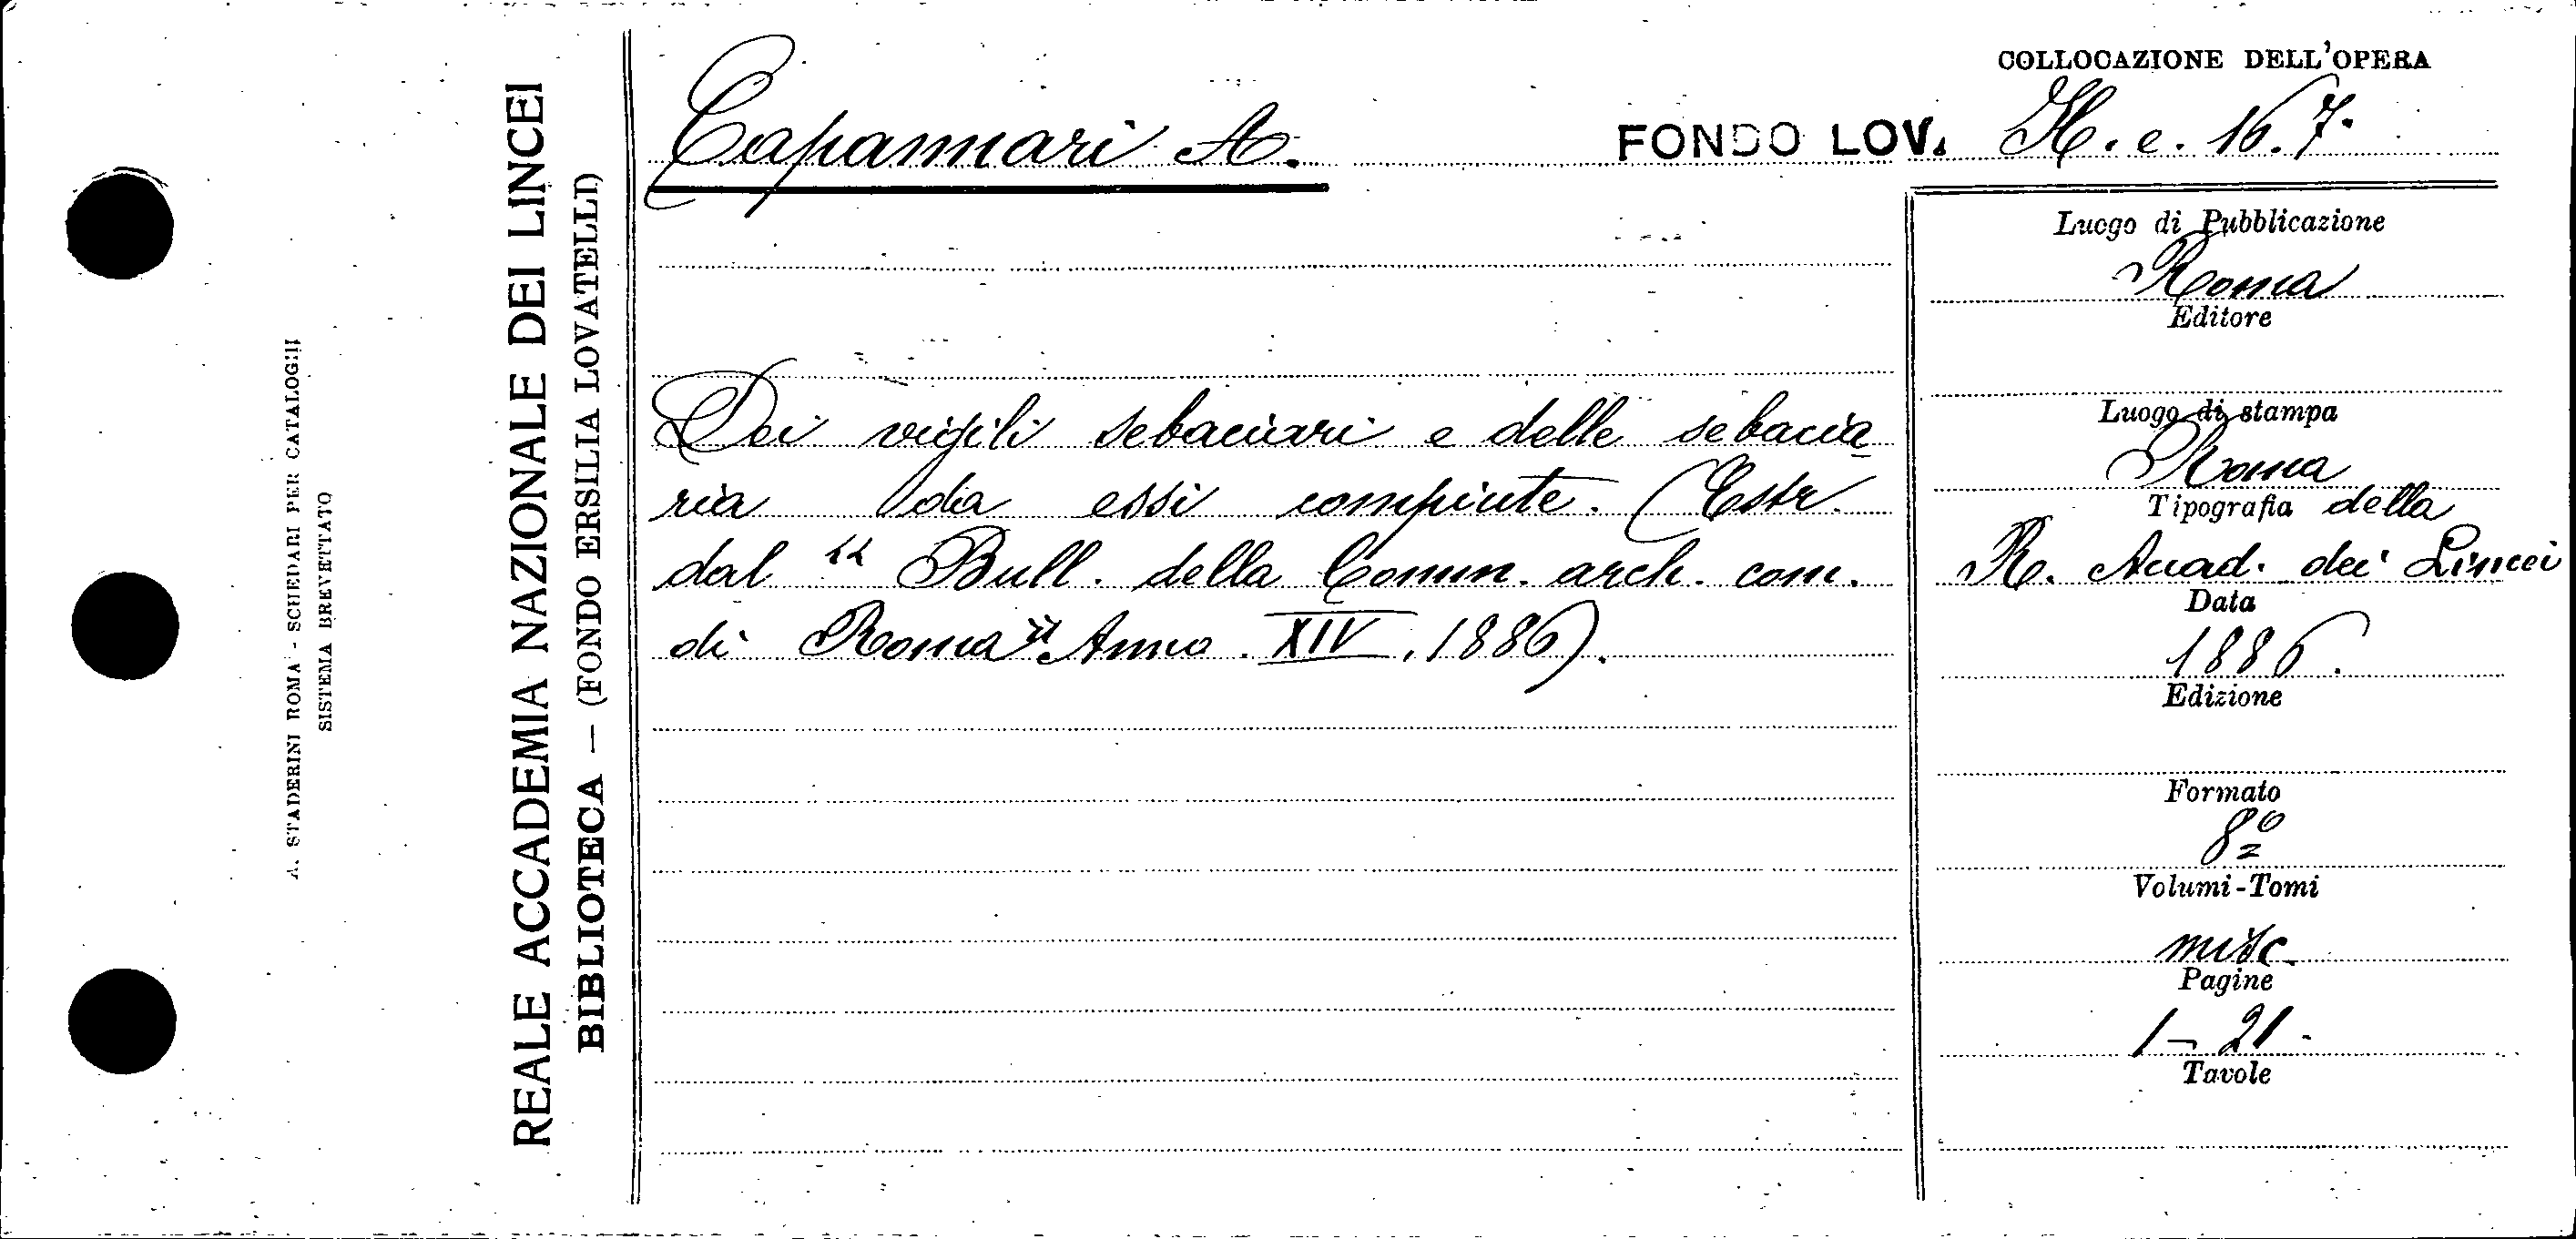 A. STADERINI ROMA - SCHEDARI PER CATALOGHI
SISTEMA BREVETTATO
REALE ACCADEMIA NAZIONALE DEI LINCEI
BIBLIOTECA — (FONDO ERSILIA LOVATELLI)
Capannari A.
Dei vigili sebaciari e delle sebacia
ria da essi compiute. (Estr.
dal “ Bull. della Comm. arch. com.
di Roma” Anno XIV, 1886).
COLLOCAZIONE DELL'OPERA
FONDO LOV. H. e. 16. 7.
Luogo di Pubblicazione
Roma
Editore
Luogo di stampa
Roma
Tipografia della
R. Accad. dei Lincei
Data
1886.
Edizione
Formato
8º
Volumi-Tomi
misc.
Pagine
1-21.
Tavole